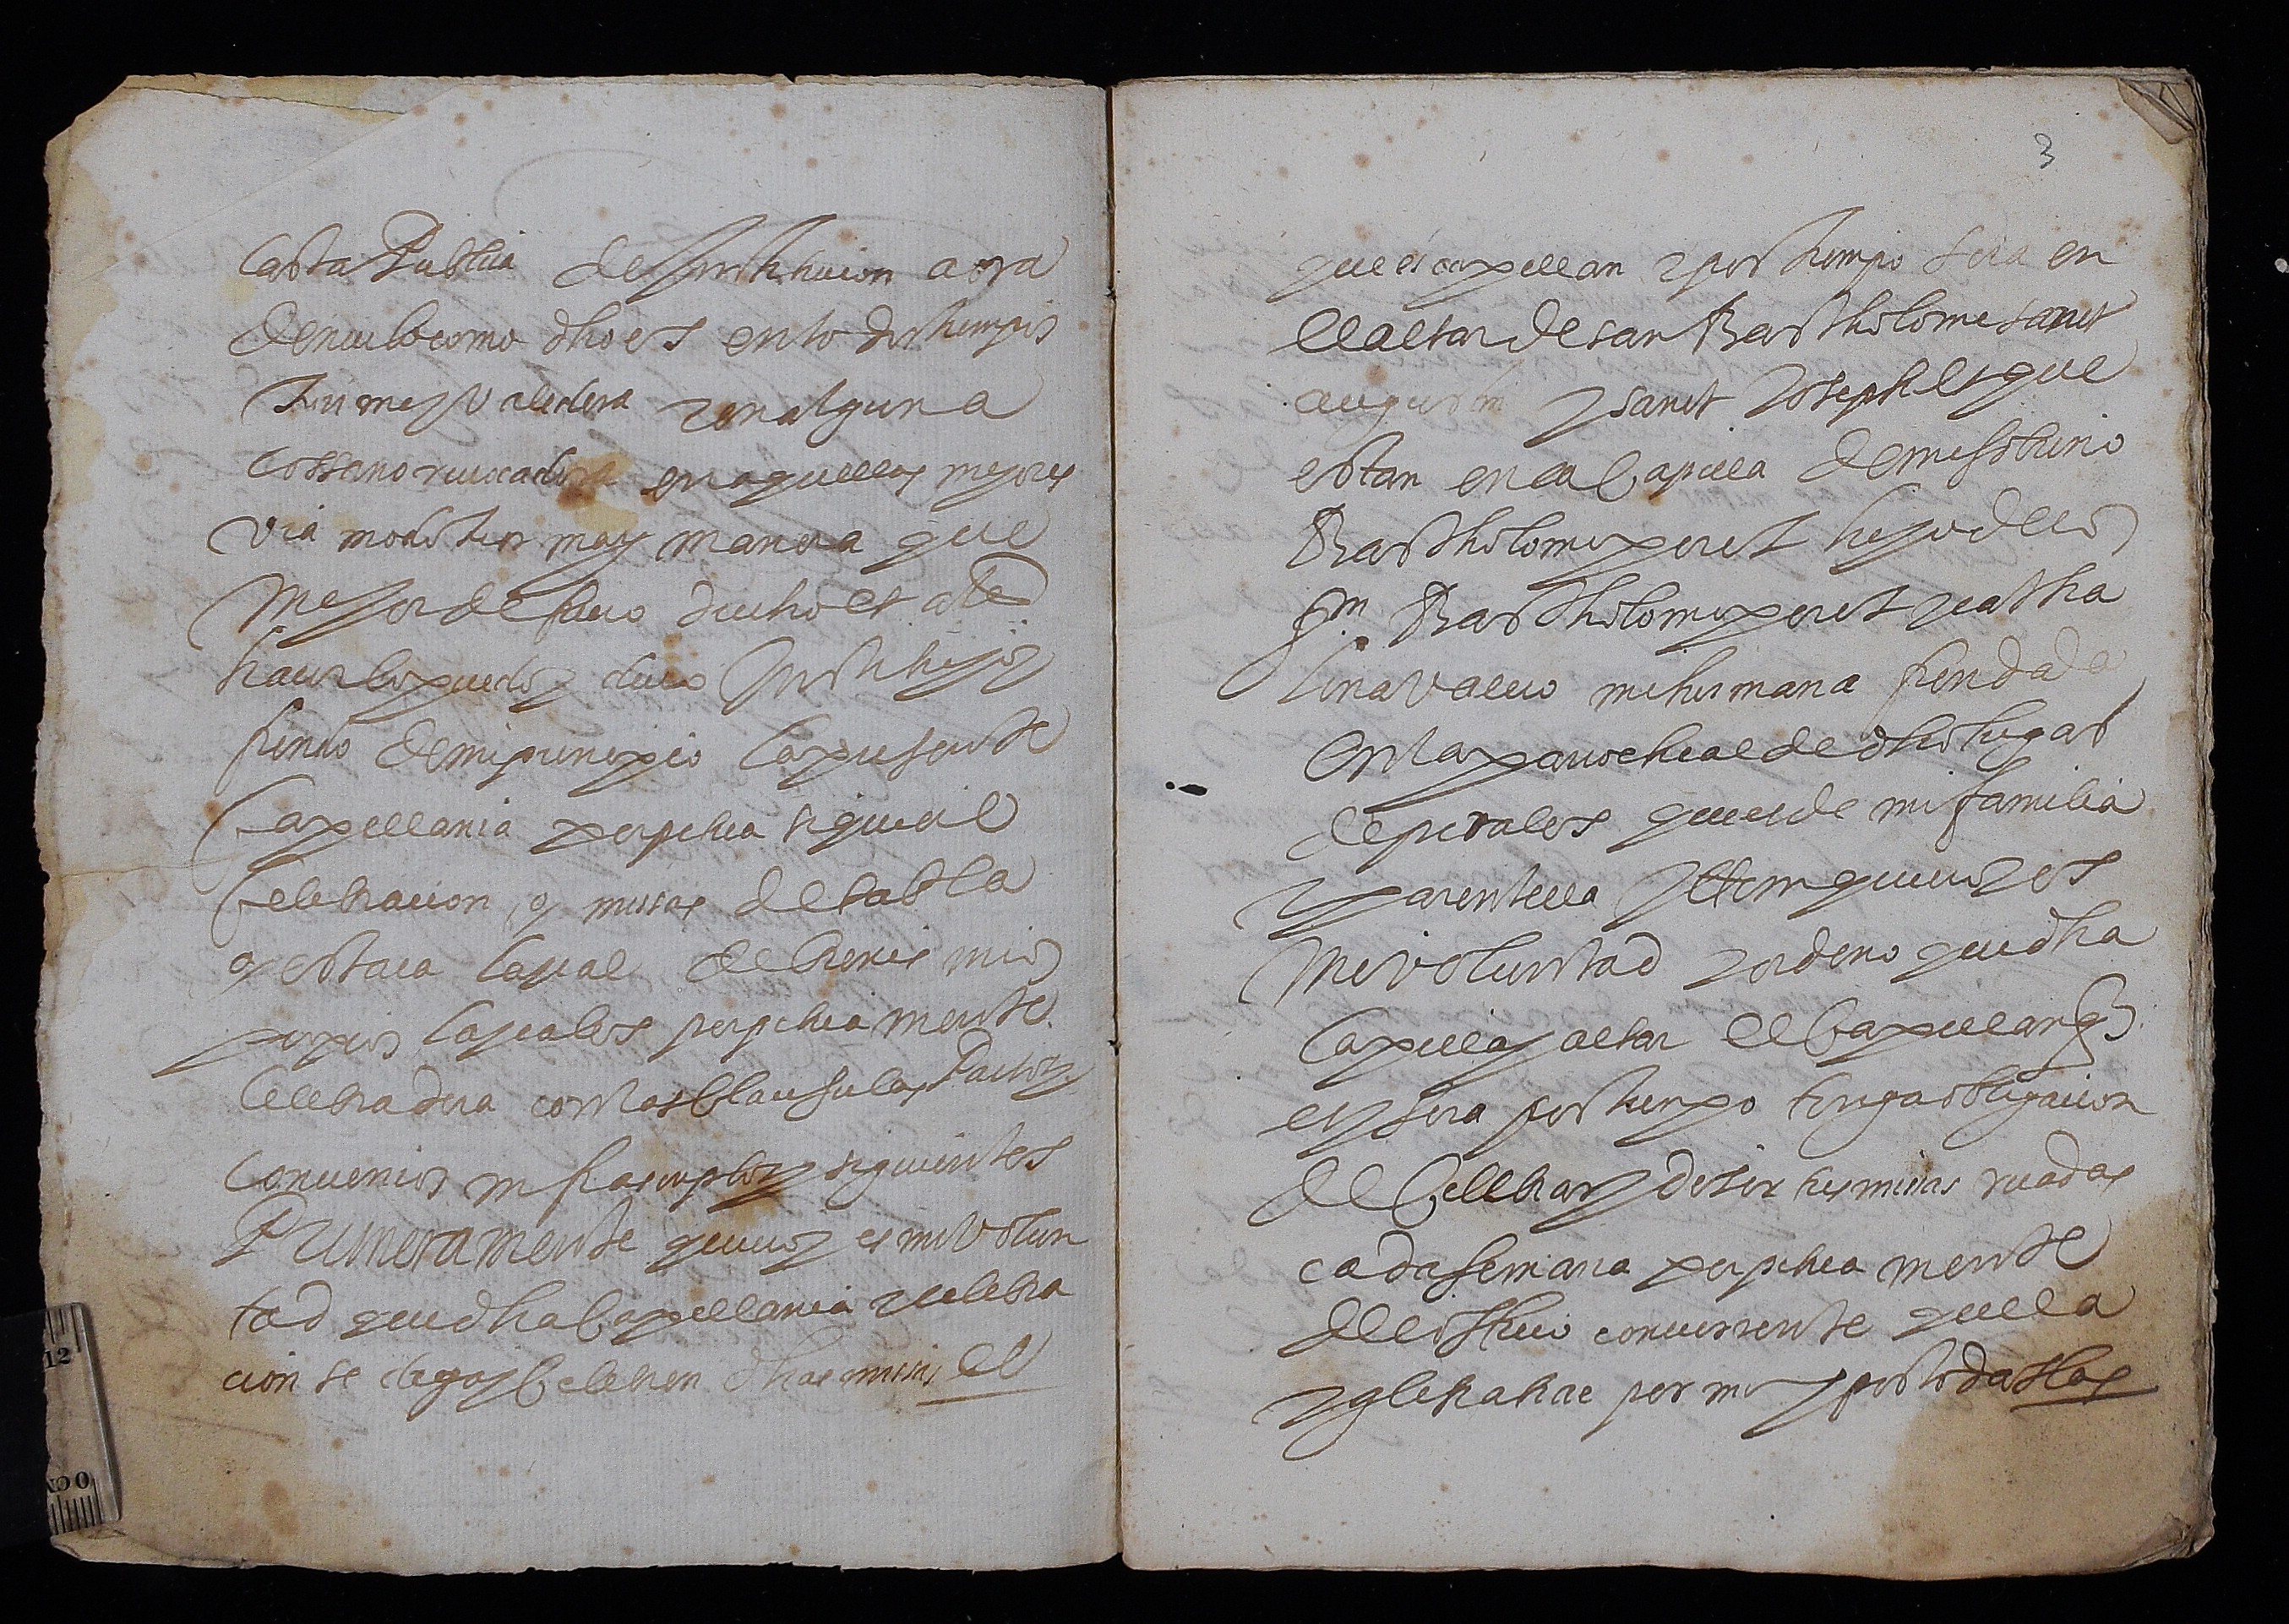 Carta Publica de Institucion aora
denueuo como dho es en todos tiempos
firme y valedera y en alguna
cossa no reuocadera en aquellas mejores
via modo for may manera que
Mejor de fuero drecho et als
hacer lo puedo y deuo Instituyo y
fundo de mi principio la presente
Capellania perpetua siquiere
Celebracion de missas de tabla
de estaca lascales de bienes mios
propios lascales perpetuamente
Celebradera con las Clausulas Pactos y
Conuenios infrascriptos y siguientes
Primeramente quiero y es mi volun
tad que dha Capellania y celebra
cion se diga y Celebren dhas missas el
3
que es capellan y por tiempo sera en
el altar de san Bartholome sanct
augustin y sanct Joseph les que
estan en la Capilla de mi sobrino
Bartholome perez hijo de los
qm Bartholome perez y catha
lina valero mi hermana fundada
en la parrochial de dho lugar
de perales que es de mi familia
y parentella Ittem quiero y es
Mi voluntad y ordeno que dha
Capilla y altar el Capellan q
es y sera por tiempo tenga obligacion
de Celebrar y desir tres missas rezadas
cada semana perpetuamente
de los tuio conuerrente que la
yglesia trae por mi y por todas las